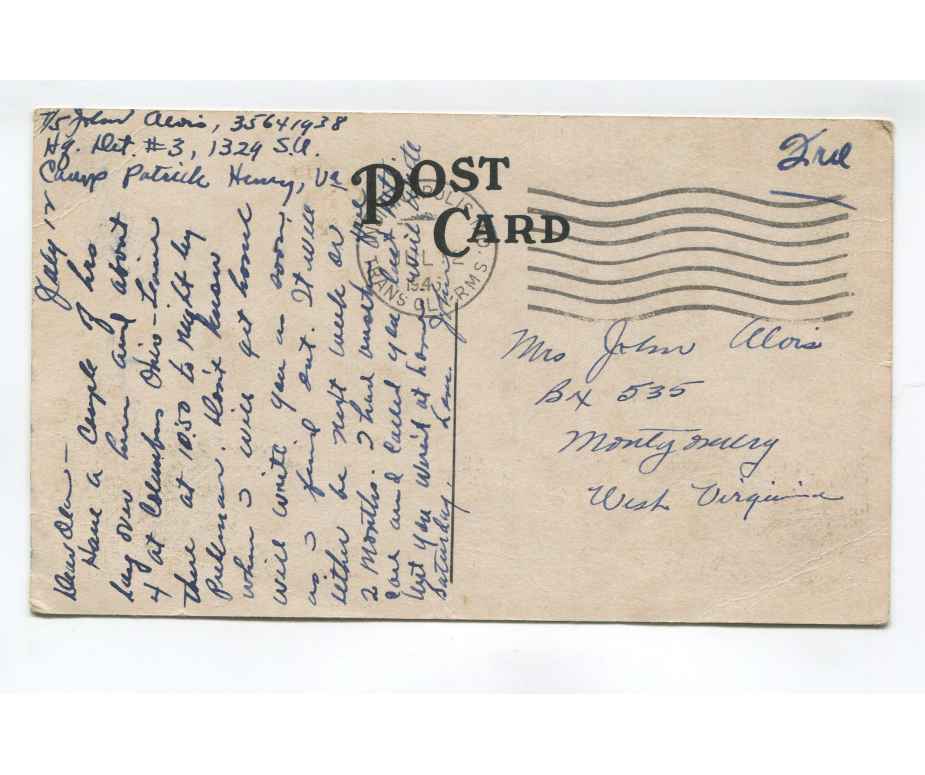 T/5 John Alois, 35641938
Hq. Det. #3, 1329 S.U.
Camp Patrick Henry, Va
Free
POST
CARD
July 12
Dear
Have a couple of hrs
lay over here and about
4 at Columbus Ohio - Leave
there at 10:50 to night by
Pullman. Don't know
when I will get home
will write you as soon
as I find out. It will
either be next week or
2 months. I had
and called you last
but you weren't at home
Saturday. Love
John
Mrs John Alois
Bx 535
Montgomery
West Virginia